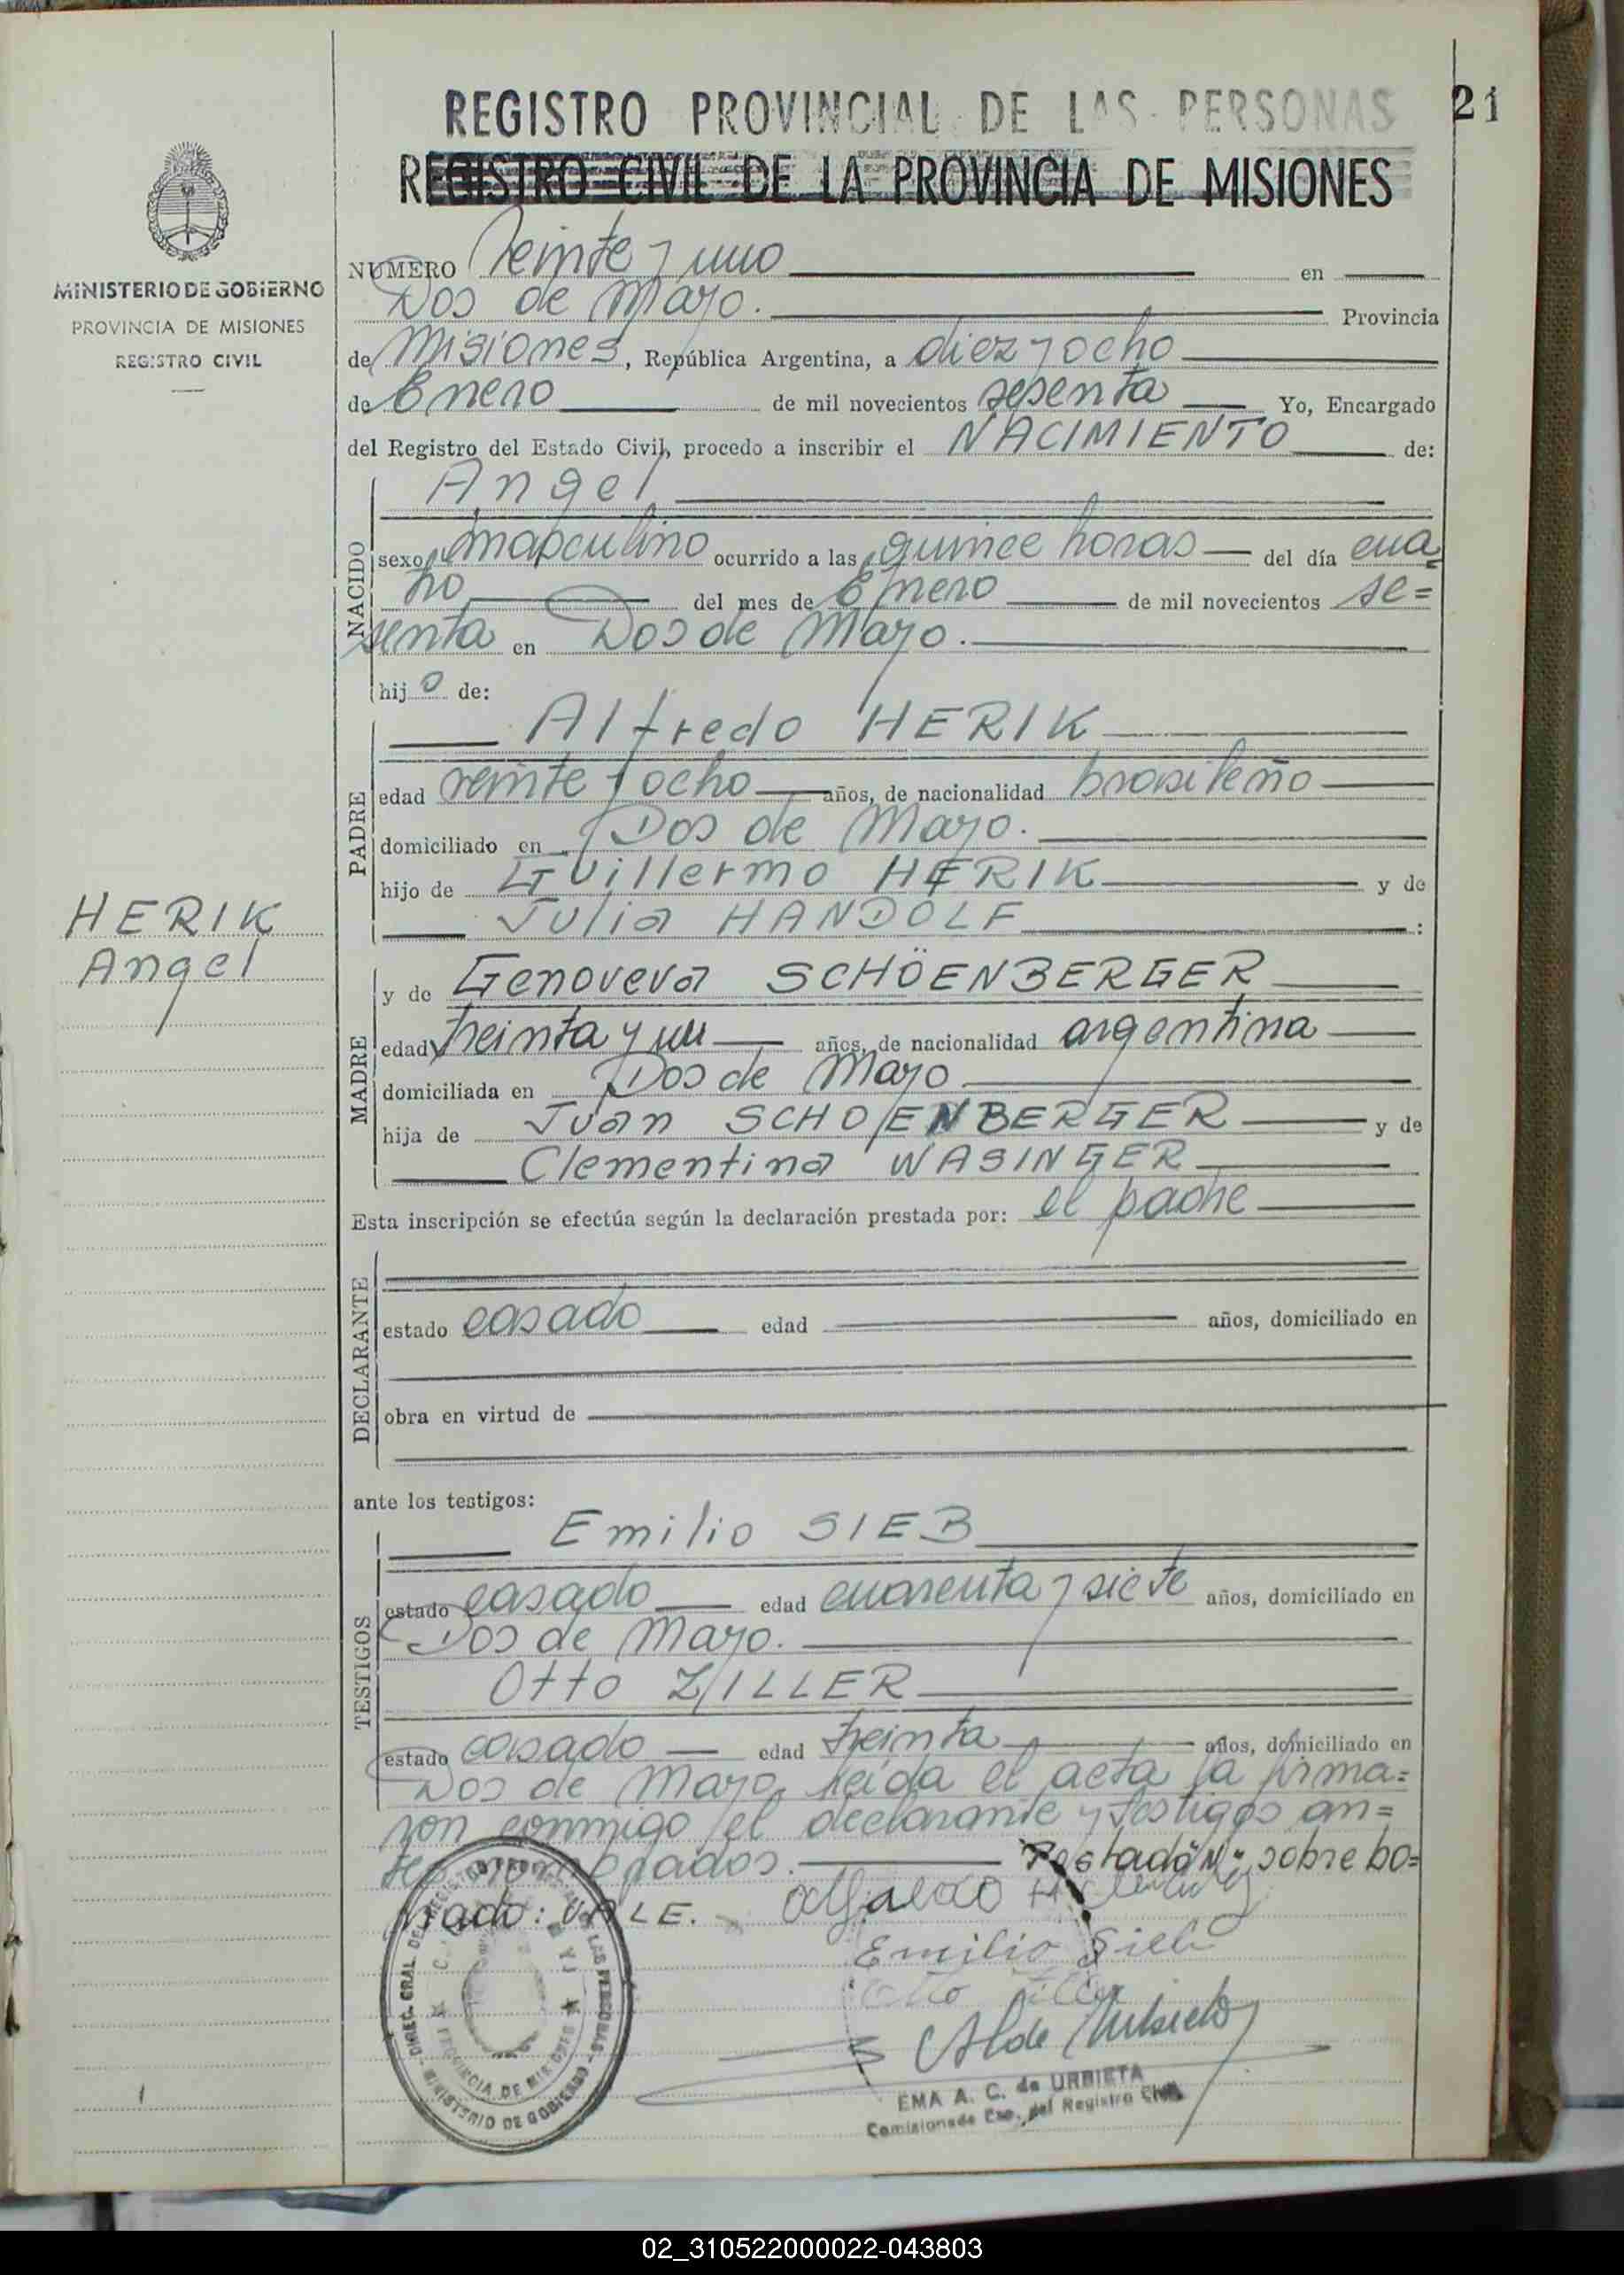 21
REGISTRO PROVINCIAL DE LAS PERSONAS
REGISTRO CIVIL DE LA PROVINCIA DE MISIONES
MINISTERIO DE GOBIERNO
PROVINCIA DE MISIONES
REGISTRO CIVIL
HERIK
Angel
NUMERO Veinte y uno en
Dos de Mayo. Provincia
de Misiones, República Argentina, a diez y ocho
de Enero de mil novecientos sesenta Yo, Encargado
del Registro del Estado Civil, procedo a inscribir el NACIMIENTO de:
NACIDO
Angel
sexo masculino ocurrido a las quince horas del día cua
tro del mes de Enero de mil novecientos se=
senta en Dos de Mayo.
hijo de:
PADRE
Alfredo HERIK
edad veinte y ocho años, de nacionalidad brasileño
domiciliado en Dos de Mayo.
hijo de Guillermo HERIK y de
Julia HANDOLF :
MADRE
y de Genoveva SCHÖENBERGER
edad treinta y un años, de nacionalidad argentina
domiciliada en Dos de Mayo
hija de Juan SCHOENBERGER y de
Clementina WASINGER
Esta inscripción se efectúa según la declaración prestada por: el padre
DECLARANTE
estado casado edad años, domiciliado en
obra en virtud de
ante los testigos:
TESTIGOS
Emilio SIEB
estado casado edad cuarenta y siete años, domiciliado en
Dos de Mayo.
Otto ZILLER
estado casado edad treinta años, domiciliado en
Dos de Mayo, leída el acta la firma=
ron conmigo el declarante y testigos an=
tes nombrados. sobre bo=
rrado: VALE.
Emilio Sieb
Otto Ziller
EMA A. C. de URBIETA
Comisionada Enc. del Registro Civil
PROVINCIA DE MISIONES
MINISTERIO DE GOBIERNO
02_310522000022-043803